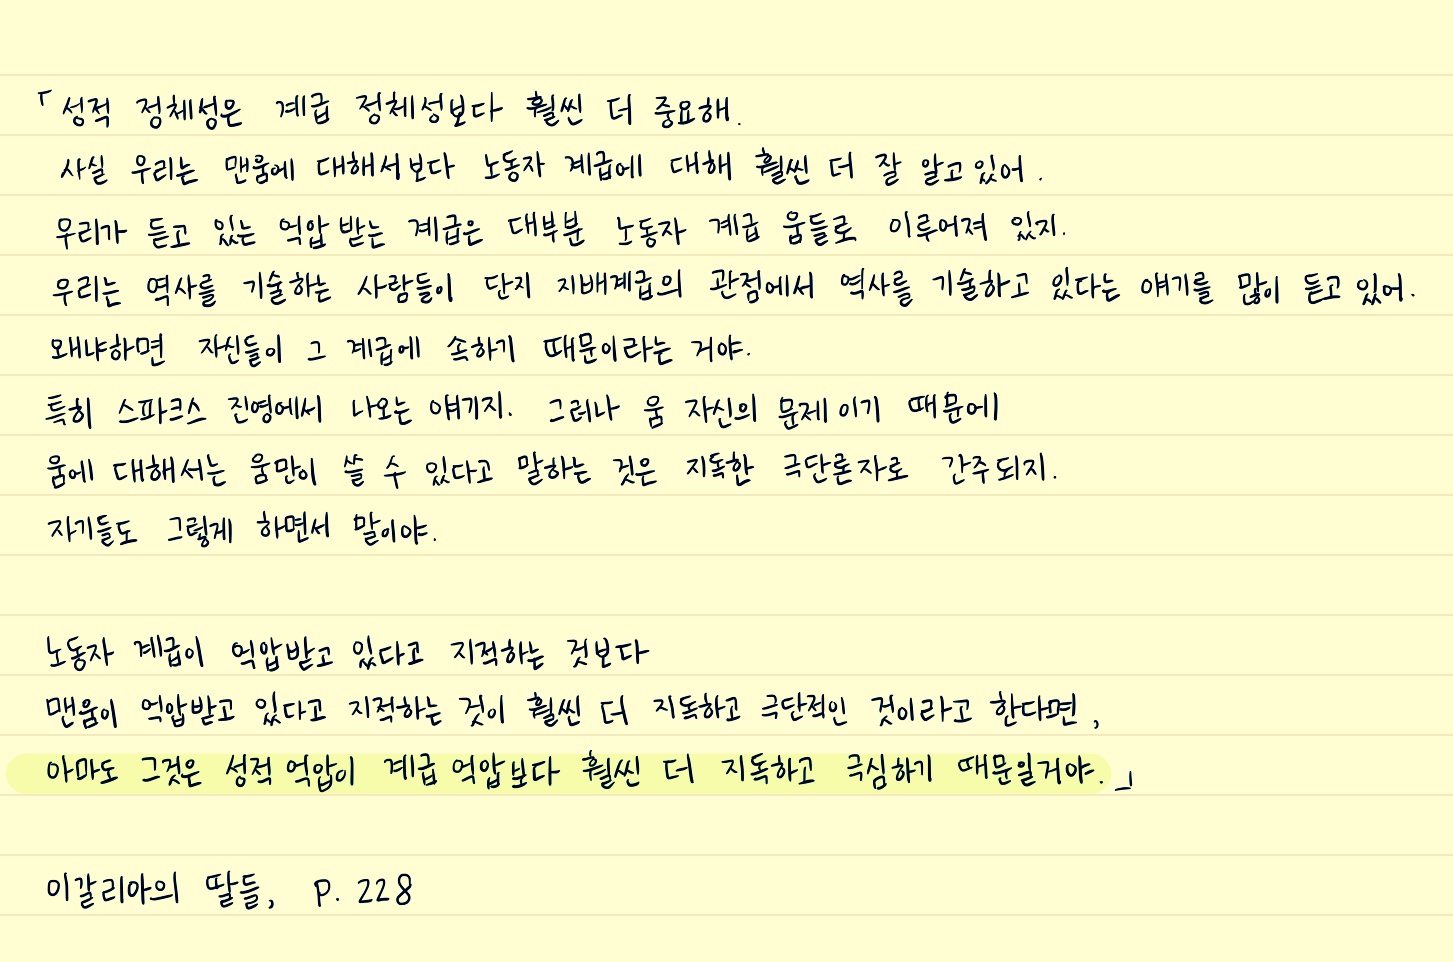 「성적 정체성은 계급 정체성보다 훨씬 더 중요해.
사실 우리는 맨움에 대해서보다 노동자 계급에 대해 훨씬 더 잘 알고 있어.
우리가 듣고 있는 억압 받는 계급은 대부분 노동자 계급 움들로 이루어져 있지.
우리는 역사를 기술하는 사람들이 단지 지배계급의 관점에서 역사를 기술하고 있다는 얘기를 많이 듣고 있어.
왜냐하면 자신들이 그 계급에 속하기 때문이라는 거야.
특히 스파크스 진영에서 나오는 얘기지. 그러나 움 자신의 문제 이기 때문에
움에 대해서는 움만이 쓸 수 있다고 말하는 것은 지독한 극단론자로 간주되지.
자기들도 그렇게 하면서 말이야.
노동자 계급이 억압받고 있다고 지적하는 것보다
맨움이 억압받고 있다고 지적하는 것이 훨씬 더 지독하고 극단적인 것이라고 한다면,
아마도 그것은 성적 억압이 계급 억압보다 훨씬 더 지독하고 극심하기 때문일거야.」
이갈리아의 딸들, P. 228